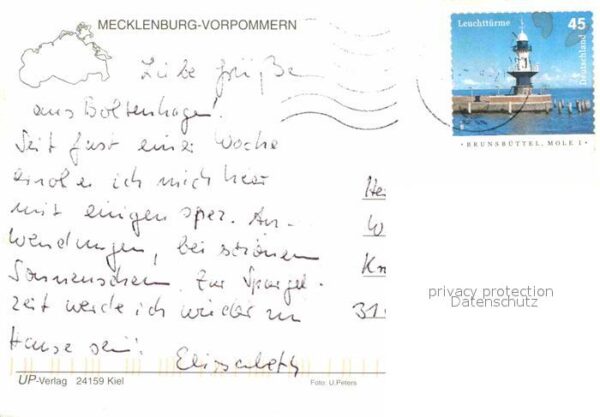 MECKLENBURG-VORPOMMERN
Liebe Grüße
aus Boltenhagen!
Seit fast einer Woche
erhole ich mich hier
mit einigen spez. An-
wendungen, bei schönem
Sonnenschein. Zur Spargel-
zeit werde ich wieder zu
Hause sein!
Elisabeth
UP-Verlag 24159 Kiel
Foto: U.Peters
Leuchttürme 45
Deutschland
• BRUNSBÜTTEL, MOLE 1 •
He
W
Kn
31
privacy protection
Datenschutz